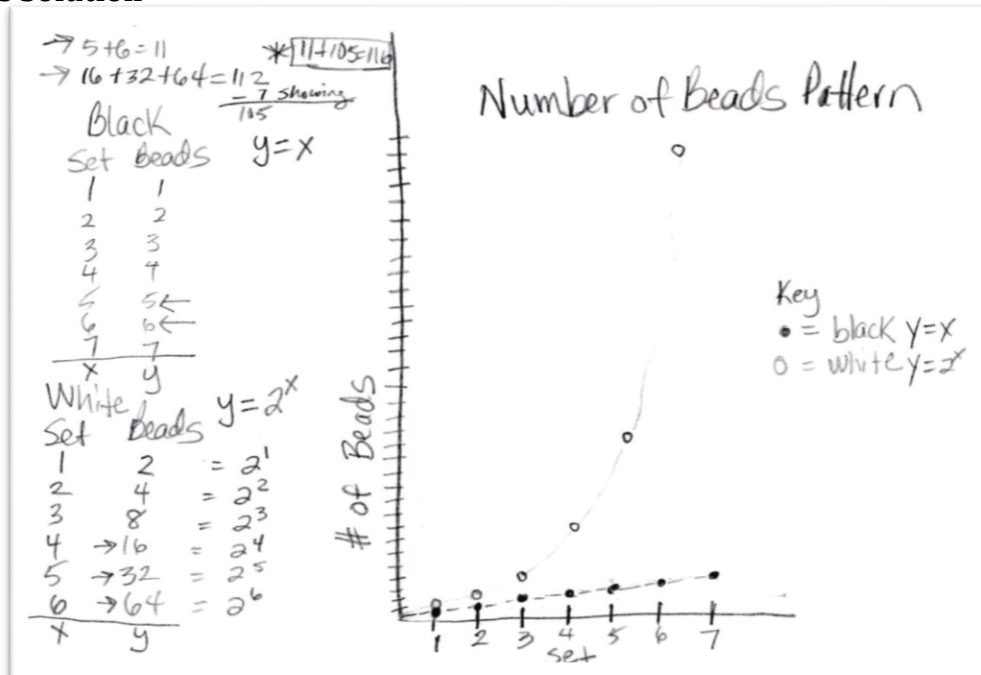 → 5+6=11
→ 16+32+64=112
- 7 showing
105
* 11+105=116
Black
Set Beads y=x
1 1
2 2
3 3
4 4
5 5←
6 6←
7 7
x y
White y=2^x
Set Beads
1 2 = 2^1
2 4 = 2^2
3 8 = 2^3
4 →16 = 2^4
5 →32 = 2^5
6 →64 = 2^6
x y
Number of Beads Pattern
# of Beads
1 2 3 4 5 6 7
set
Key
• = black y=x
o = white y=2^x